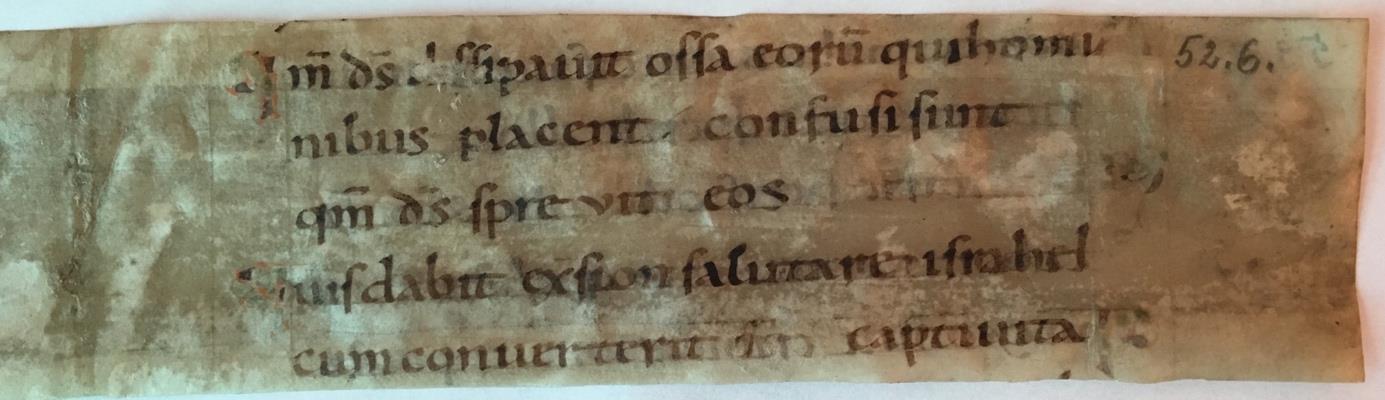 Qm̄ ds̄ dissipauit ossa eorū qui homi 52.6.
nibus placent confusi sunt
qm̄ ds̄ spreuit eos
Quis dabit ex sion salutare israhel
cum conuerterit captiuita